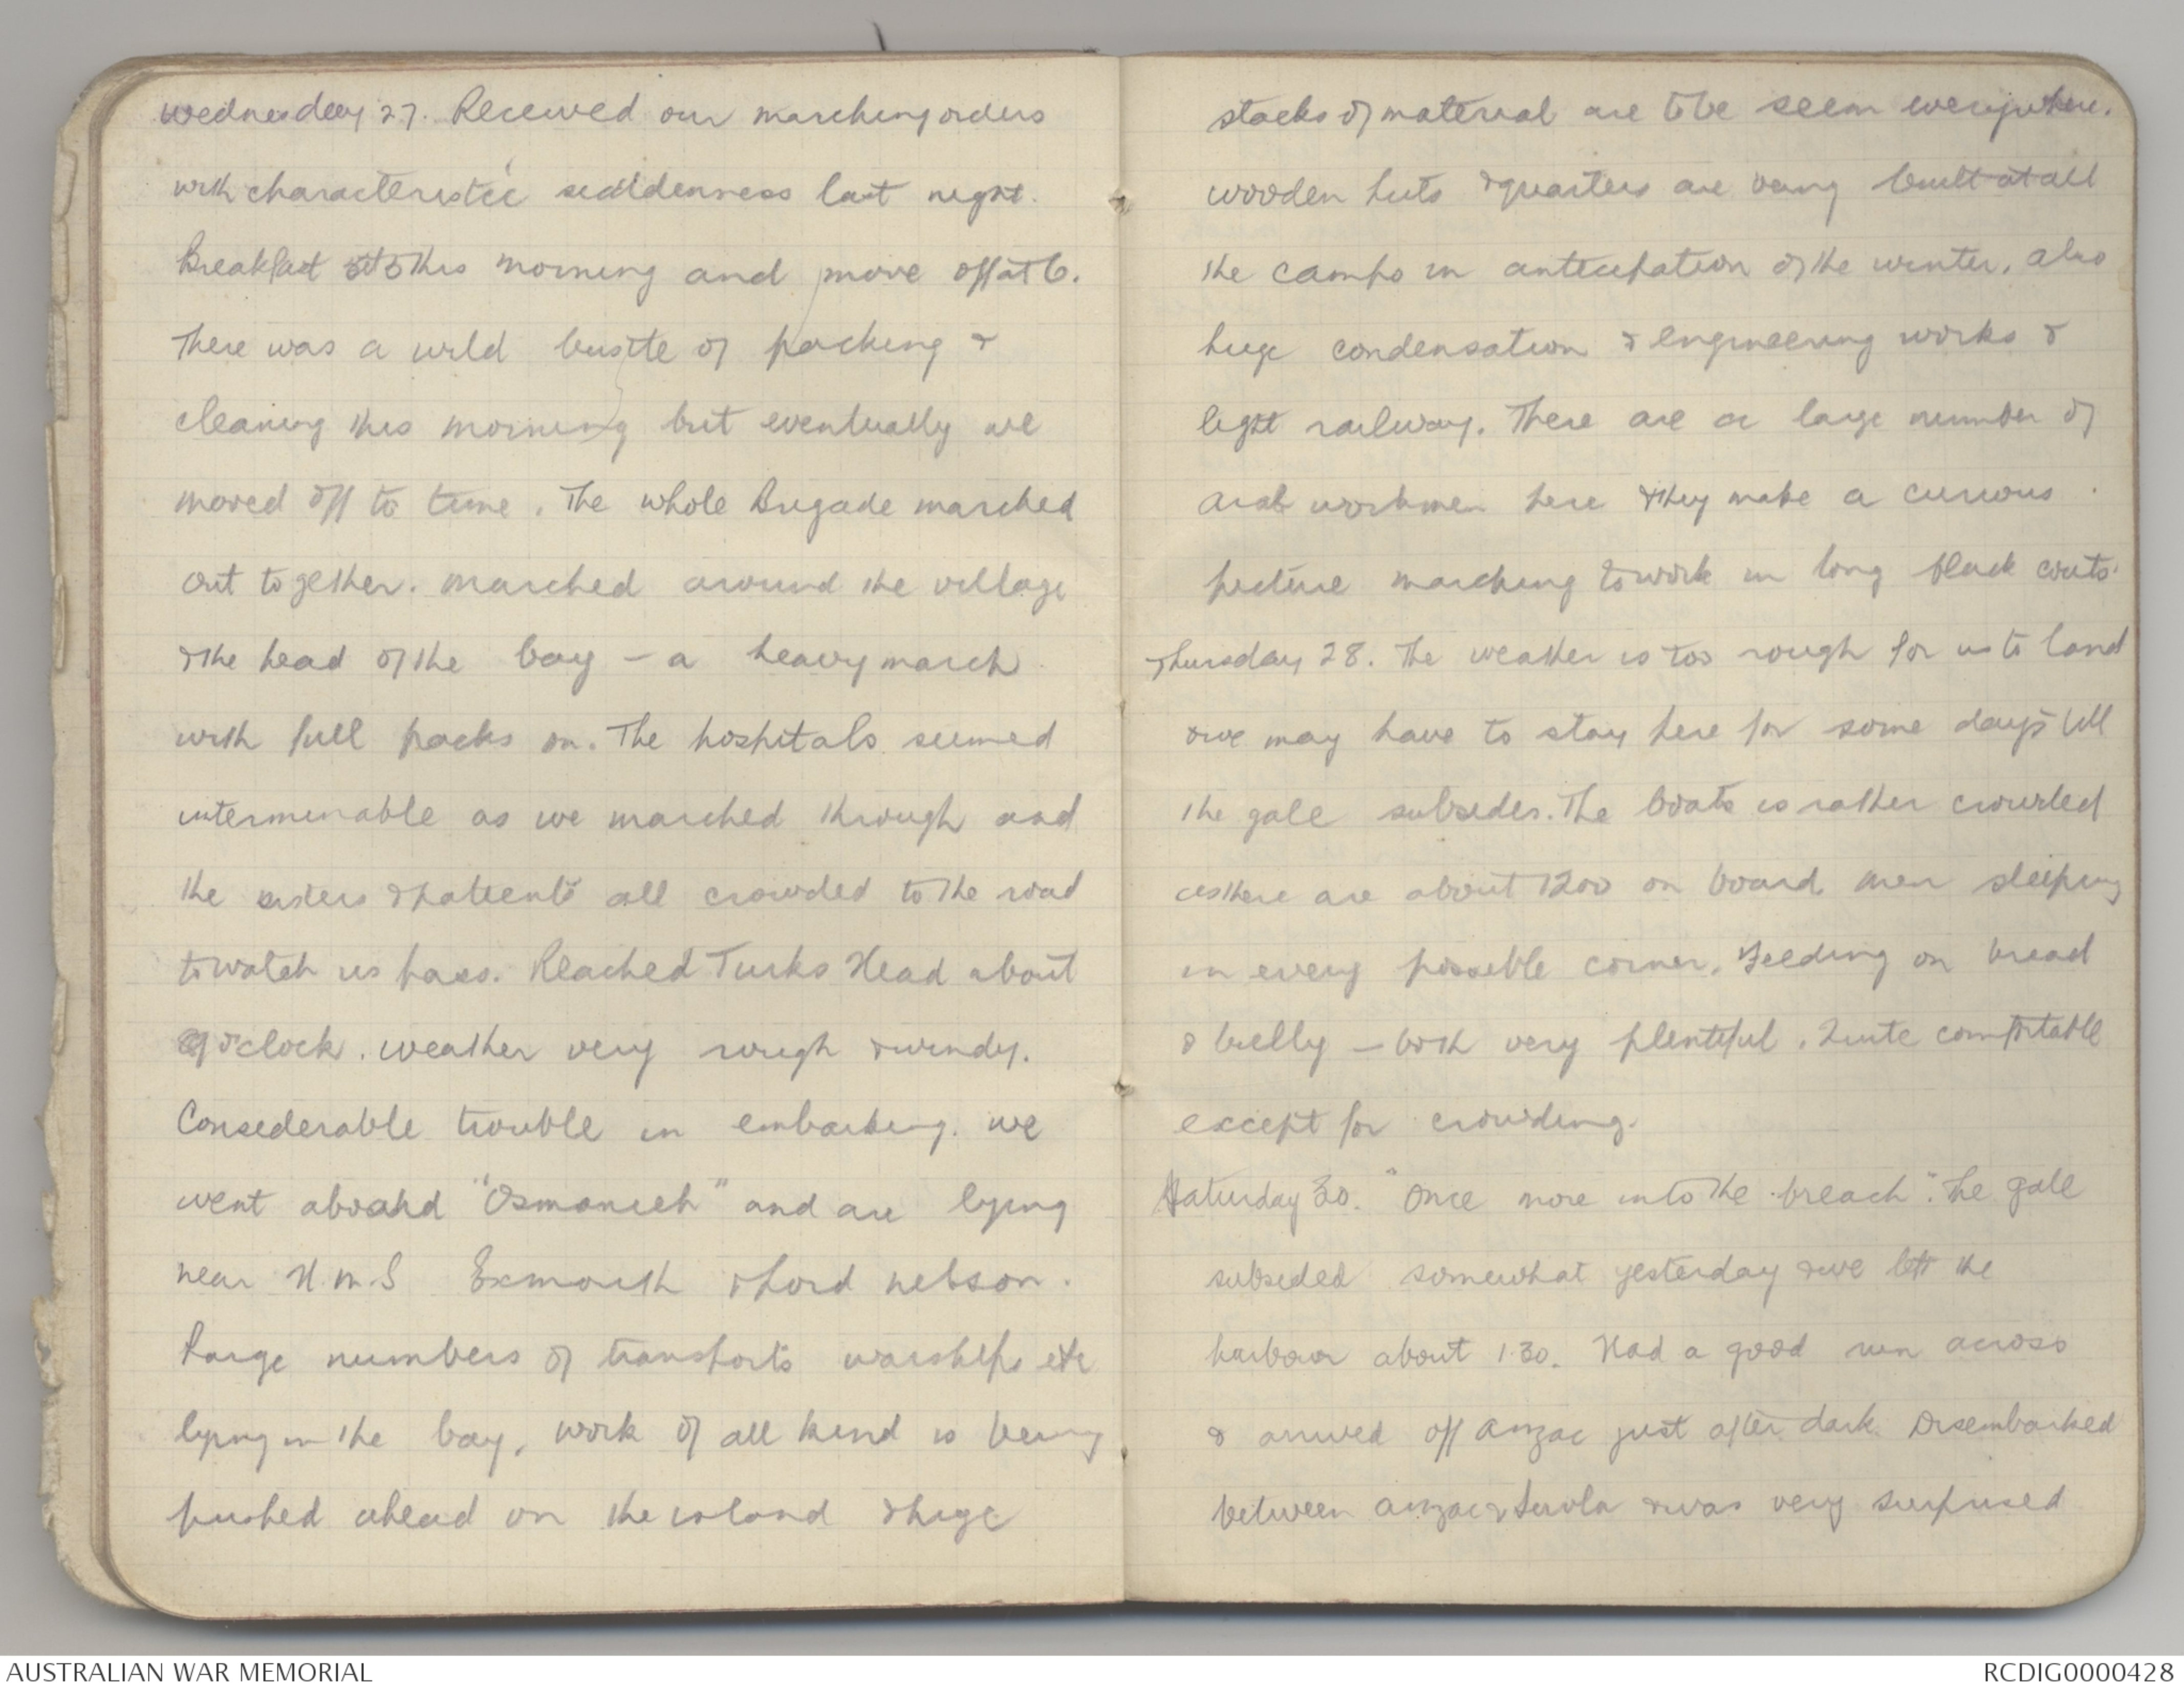 Wednesday 27. Received our marching orders
with characteristic suddenness last night.
Breakfast at 5 this morning and move off at 6.
There was a wild bustle of packing &
cleaning this morning but eventually we
moved off to time. The whole Brigade marched
out together. Marched around the village
& the head of the bay – a heavy march
with full packs on. The hospitals seemed
interminable as we marched through and
the sisters & patients all crowded to the road
to watch us pass. Reached Turks Head about
9 o'clock. Weather very rough & windy.
Considerable trouble in embarking. We
went aboard "Osmanieh" and are lying
near H.M.S Exmouth & Lord Nelson.
Large numbers of transports warships etc
lying in the bay, work of all kind is being
pushed ahead on the island & huge
stacks of material are to be seem everywhere.
Wooden huts & quarters are being built at all
the camps in anticipation of the winter, also
huge condensation & engineering works &
light railway. There are a large number of
Arab workmen here & they make a curious
picture marching to work in long black coats.
Thursday 28. The weather is too rough for us to land
& we may have to stay here for some days till
the gale subsides. The boats is rather crowded
as there are about 1200 on board, men sleeping
in every possible corner. Feeding on bread
& bully – both very plentiful. Quite comfortable
except for crowding.
Saturday 30. "Once more into the breach". The gale
subsided somewhat yesterday & we left the
harbour about 1.30. Had a good run across
& arrived off Anzac just after dark. Disembarked
between Anzac & Suvla & was very surprised
AUSTRALIAN WAR MEMORIAL
RCDIG0000428